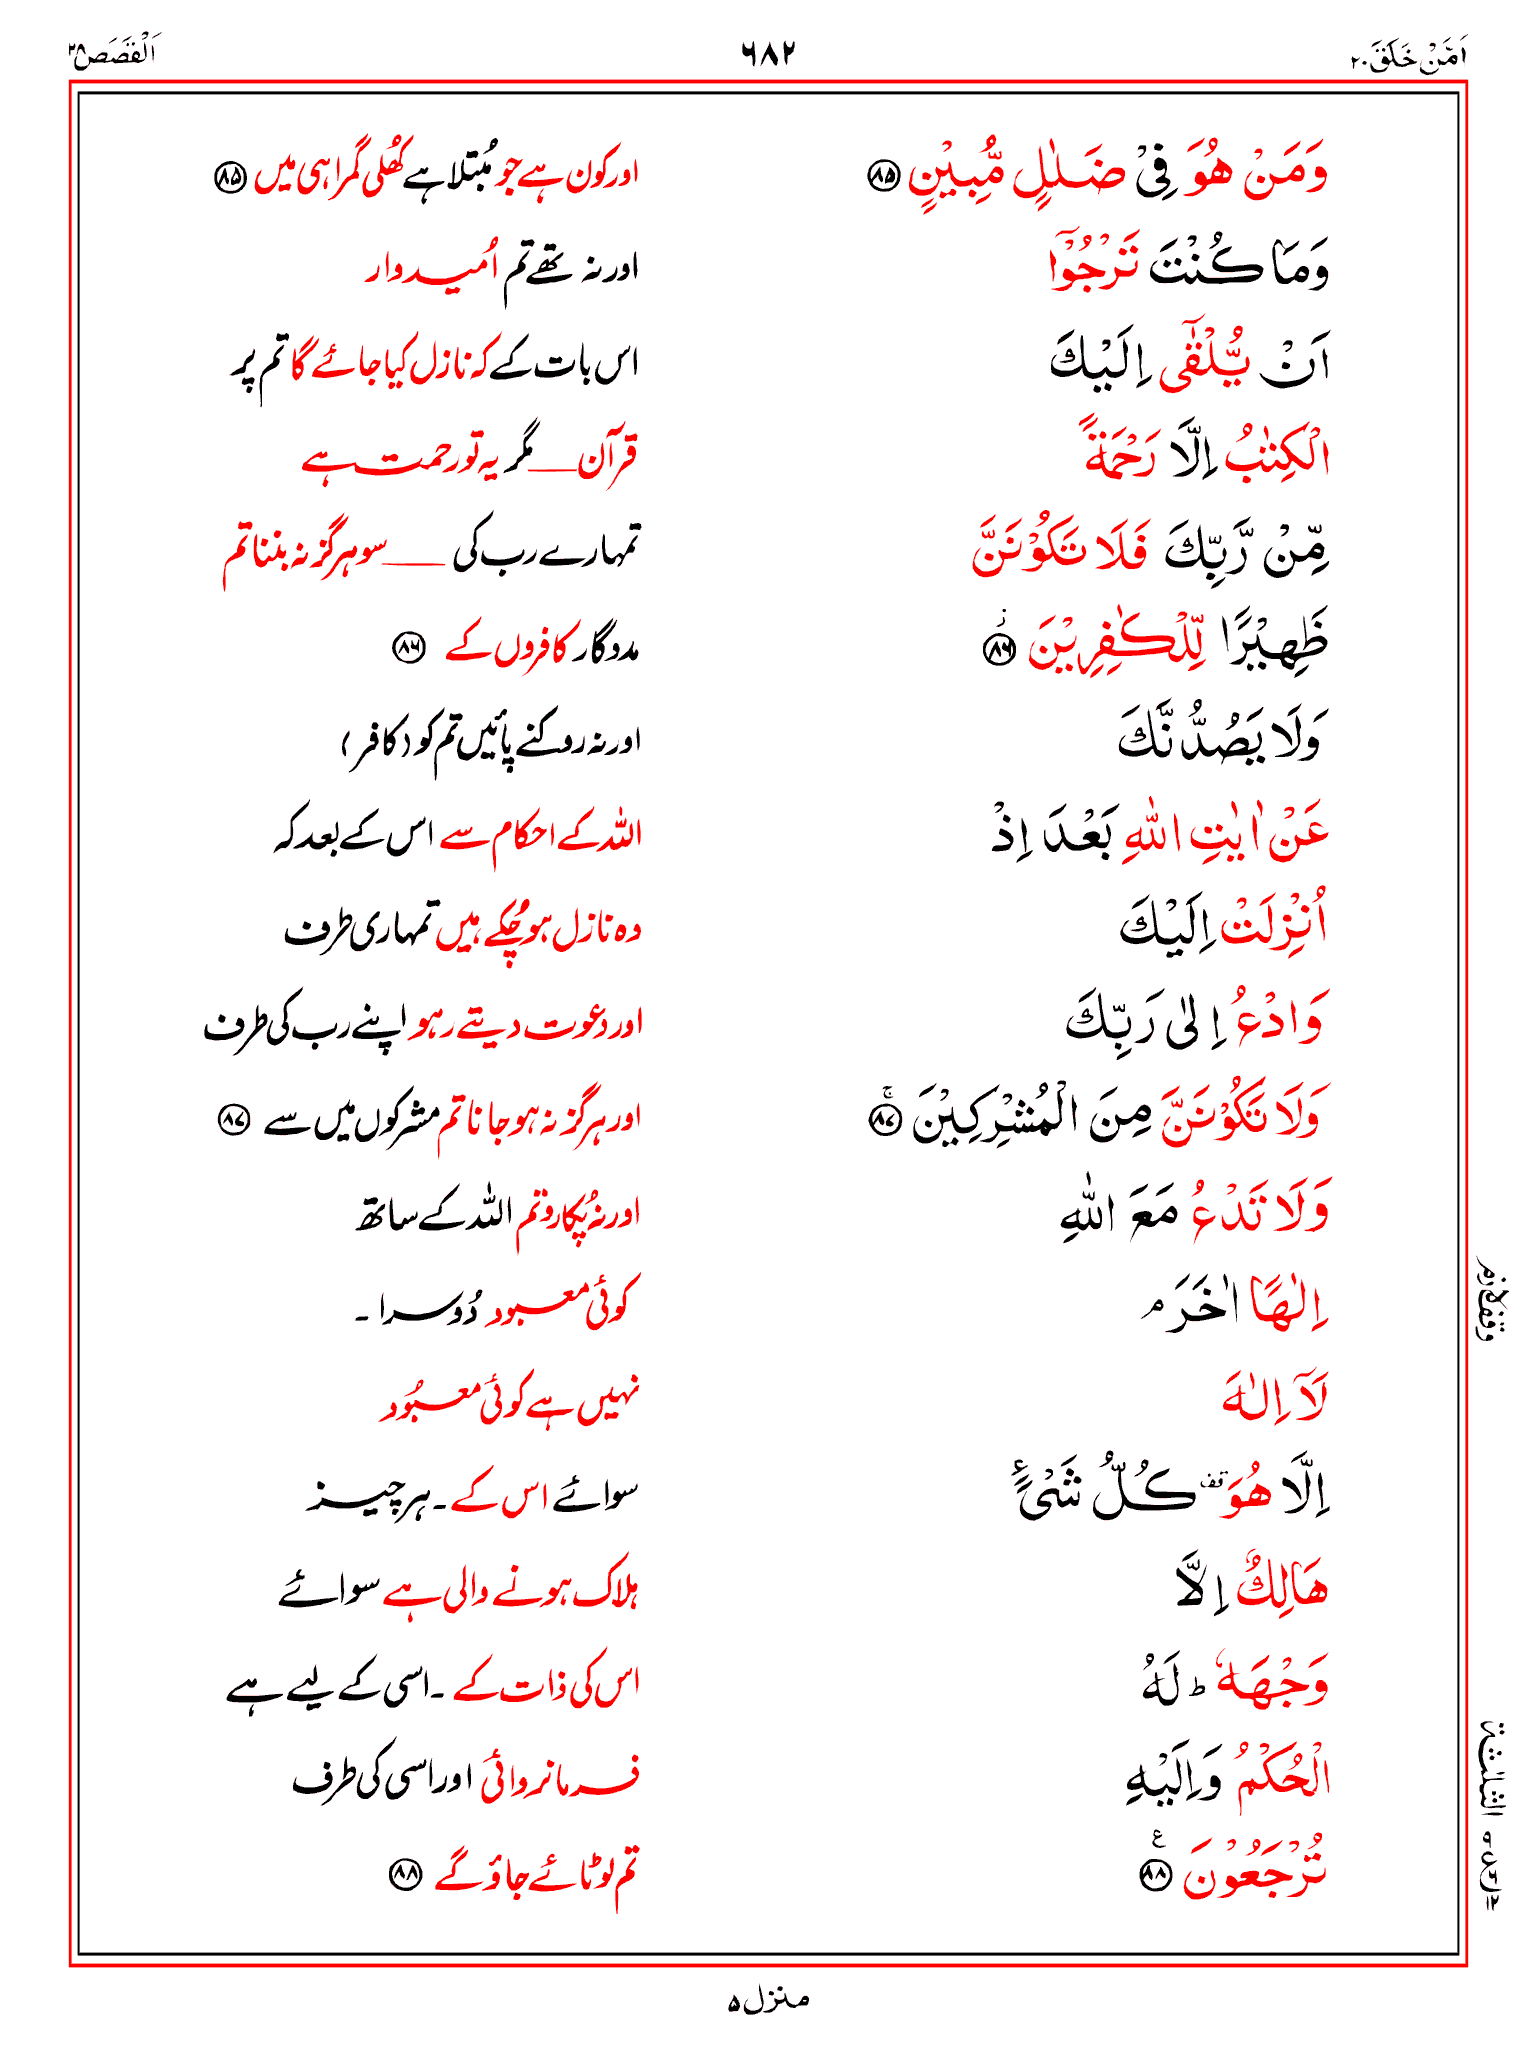 اَمَّنْ خَلَقَ ۲۰ ۶۸۲ اَلْقَصَص ۲۸
وَمَنْ هُوَ فِیْ ضَلٰلٍ مُّبِیْنٍ ۸۵ اور کون ہے جو مُبتلا ہے کھُلی گمراہی میں ۸۵
وَمَا كُنْتَ تَرْجُوْۤا اور نہ تھے تم اُمیدوار
اَنْ یُّلْقٰۤى اِلَیْكَ اس بات کے کہ نازل کیا جائے گا تم پر
الْكِتٰبُ اِلَّا رَحْمَةً قرآن__ مگر یہ تو رحمت ہے
مِّنْ رَّبِّكَ فَلَا تَكُوْنَنَّ تمہارے رب کی __ سو ہرگز نہ بننا تم
ظَهِیْرًا لِّلْكٰفِرِیْنَ ۸۶ ز مددگار کافروں کے ۸۶
وَلَا یَصُدُّنَّكَ اور نہ روکنے پائیں تم کو (کافر)
عَنْ اٰیٰتِ اللّٰهِ بَعْدَ اِذْ اللہ کے احکام سے اس کے بعد کہ
اُنْزِلَتْ اِلَیْكَ وہ نازل ہو چُکے ہیں تمہاری طرف
وَادْعُ اِلٰى رَبِّكَ اور دعوت دیتے رہو اپنے رب کی طرف
وَلَا تَكُوْنَنَّ مِنَ الْمُشْرِكِیْنَ ۸۷ ج اور ہرگز نہ ہو جانا تم مشرکوں میں سے ۸۷
وَلَا تَدْعُ مَعَ اللّٰهِ اور نہ پُکارو تم اللہ کے ساتھ
اِلٰهًا اٰخَرَ م کوئی معبود دُوسرا ۔
وقف لازم
لَاۤ اِلٰهَ نہیں ہے کوئی معبُود
اِلَّا هُوَ قف كُلُّ شَیْءٍ سوائے اس کے ۔ ہر چیز
هَالِكٌ اِلَّا ہلاک ہونے والی ہے سوائے
وَجْهَهٗ ط لَهُ اس کی ذات کے ۔ اسی کے لیے ہے
الْحُكْمُ وَاِلَیْهِ فرمانروائی اور اسی کی طرف
تُرْجَعُوْنَ ۸۸ ع تم لوٹائے جاؤ گے ۸۸
الثلٰثة
منزل ۵